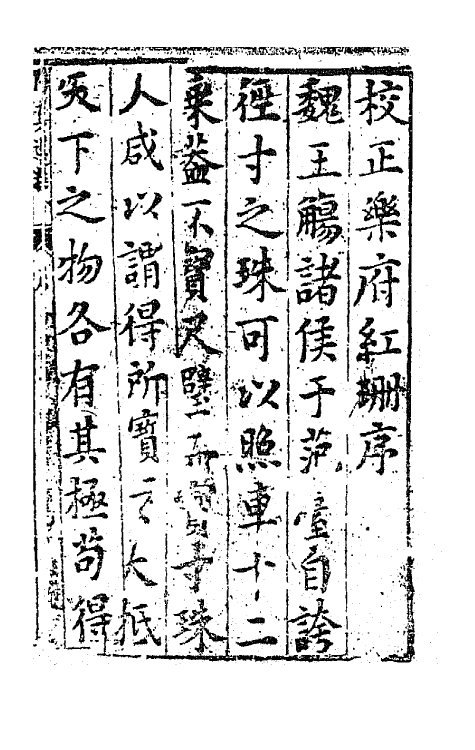 校正樂府紅珊序
魏王觴諸侯于范臺自誇
徑寸之珠可以照車十二
乘蓋不寶尺璧而寸珠
人咸以謂得所寶云大抵
天下之物各有其極茍得